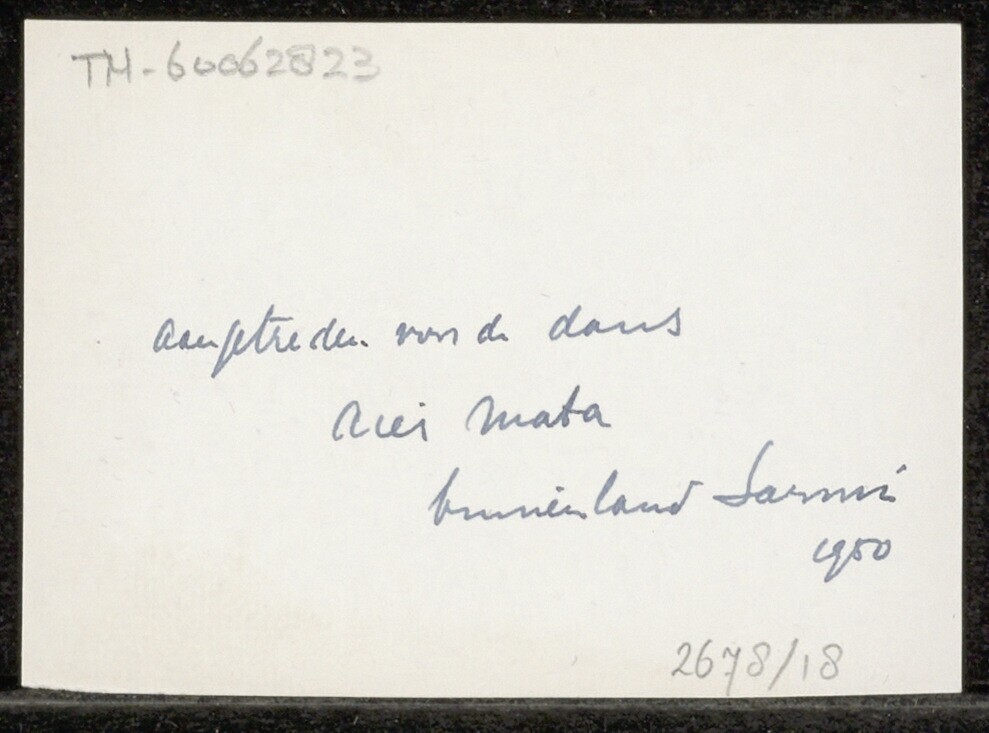 TM-60062823
aangetreden voor de dans
Mata
binnenland Sarmi
1950
2678/18